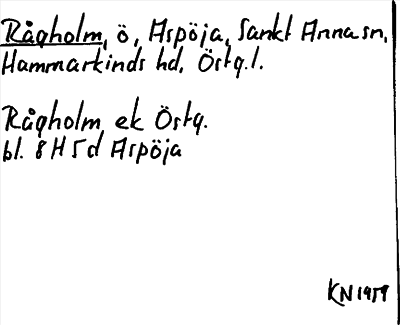 Rågholm, ö, Aspöja, Sankt Anna sn,
Hammarkinds hd, Östg.l.
Rågholm ek Östg.
bl. 8 H 5 d Aspöja
KN 1959